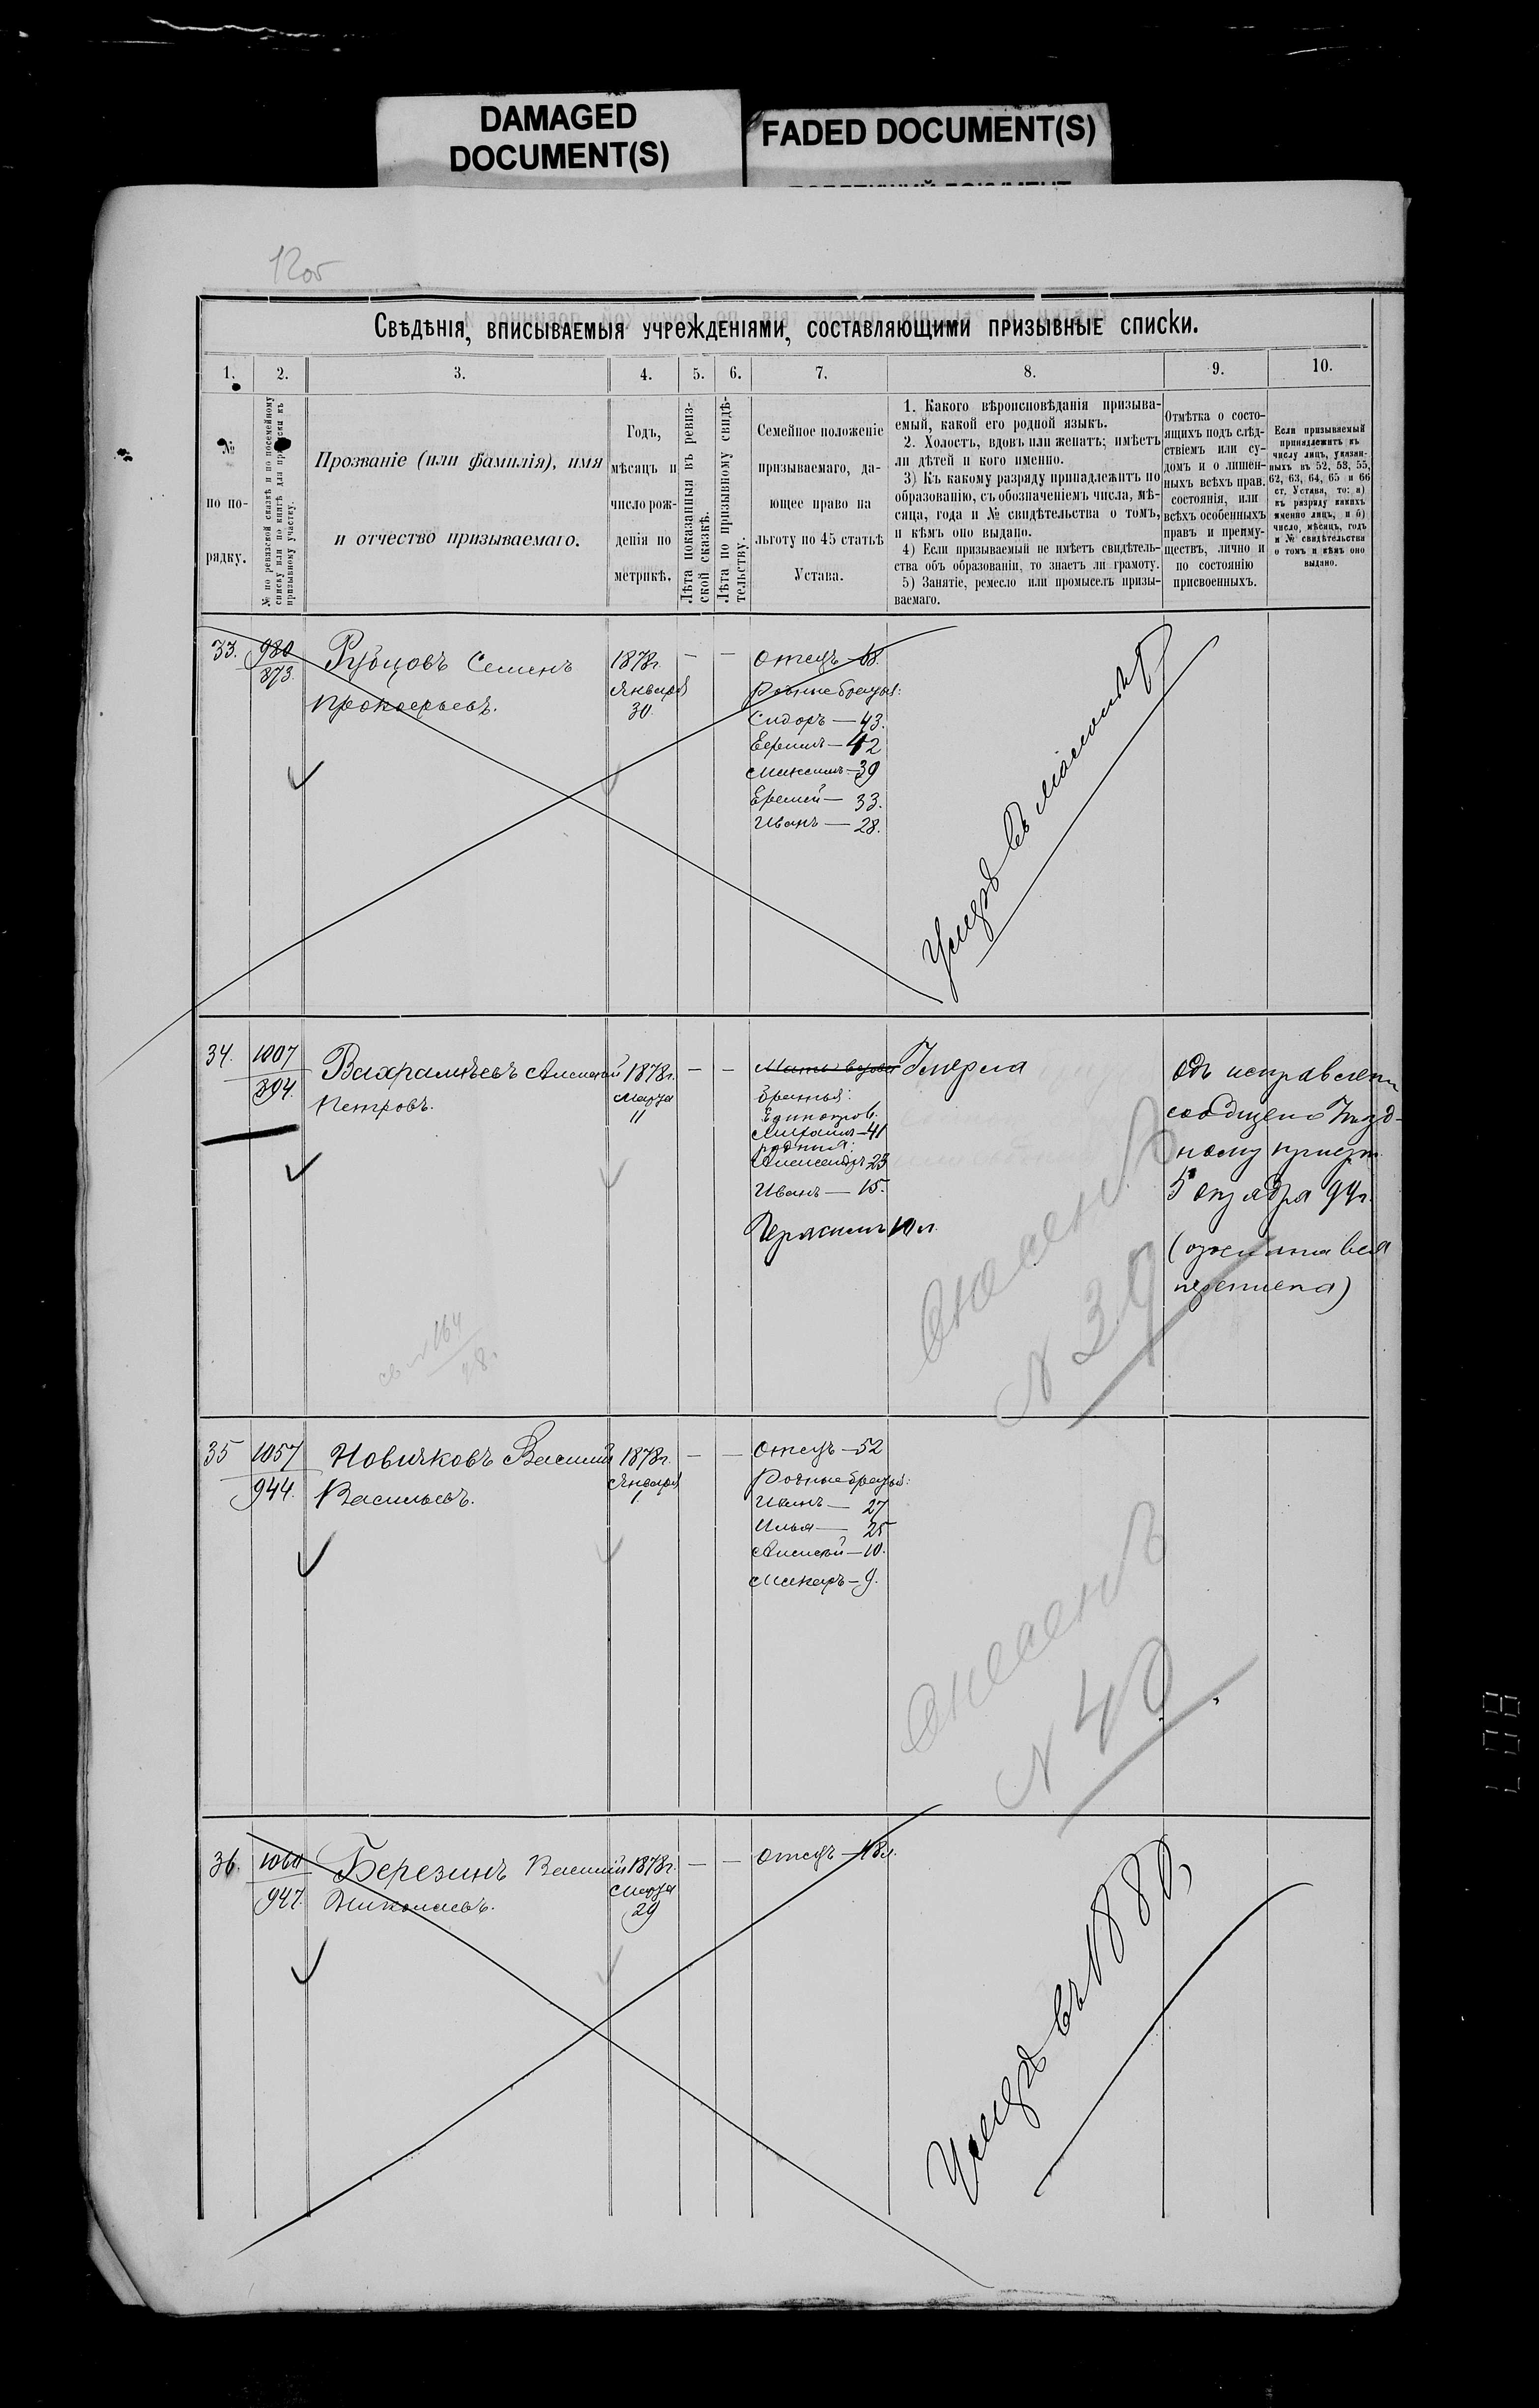 DAMAGED
DOCUMENT(S)
FADED DOCUMENT(S)
12об
Свѣдѣнія, вписываемыя учрежденіями, составляющими призывные списки.
1.
2.
3.
4.
5.
6.
7.
8.
9.
10.
№
по по-
рядку.
№ по ревизской сказкѣ и по посемейному
списку или по книгѣ для приписки къ
призывному участку.
Прозваніе (или фамилія), имя
и отчество призываемаго.
Годъ,
мѣсяцъ и
число рож-
денія по
метрикѣ.
Лѣта показанныя въ ревиз-
ской сказкѣ.
Лѣта по призывному свидѣ-
тельству.
Семейное положеніе
призываемаго, да-
ющее право на
льготу по 45 статьѣ
Устава.
1. Какого вѣроисповѣданія призыва-
емый, какой его родной языкъ.
2. Холостъ, вдовъ или женатъ; имѣетъ
ли дѣтей и кого именно.
3) Къ какому разряду принадлежитъ по
образованію, съ обозначеніемъ числа, мѣ-
сяца, года и № свидѣтельства о томъ,
и кѣмъ оно выдано.
4) Если призываемый не имѣетъ свидѣтель-
ства объ образованіи, то знаетъ ли грамоту.
5) Занятіе, ремесло или промыселъ призы-
ваемаго.
Отмѣтка о состо-
ящихъ подъ слѣд-
ствіемъ или су-
домъ и о лишен-
ныхъ всѣхъ прав.
состоянія, или
всѣхъ особенныхъ
правъ и преиму-
ществъ, лично и
по состоянію
присвоенныхъ.
Если призываемый
принадлежитъ къ
числу лицъ, указан-
ныхъ въ 52, 53, 55,
62, 63, 64, 65 и 66
ст. Устава, то: а)
къ разряду какихъ
именно лицъ, и б)
число, мѣсяцъ, годъ
и № свидѣтельства
о томъ и кѣмъ оно
выдано.
33.
980
873.
Рубцовъ Семенъ
Прокофьевъ.
1878г.
Января
30.
—
—
Отецъ — 68.
Родные братья:
Сидоръ — 43.
Ефимъ — 42
Максимъ — 39
Еремѣй — 33.
Иванъ — 28.
Умеръ въ
34.
1007
894.
Вахрамѣевъ Алексѣй
Петровъ.
1878г.
Марта
11
—
—
Мать вдова
Братья:
Единокров.
Михаилъ — 41
родныя:
Александръ 23
Иванъ — 15.
Герасимъ 10 л.
Умерла
Объ исправлени
сообщено Уѣзд-
ному
5 октября 99г.
Внесенъ
N 39
св N 164
28.
35
1057
944.
Новичковъ Василій
Васильевъ.
1878г.
Января
1.
—
—
Отецъ — 52
Родные братья:
Иванъ — 27
Илья — 25
Алексѣй — 10.
Макаръ — 9.
Внесенъ
N 40
36.
1060
947.
Березинъ Василій
Николаевъ.
1878г.
Марта
29
—
—
Отецъ — 48 л.
Умеръ въ 1880
807